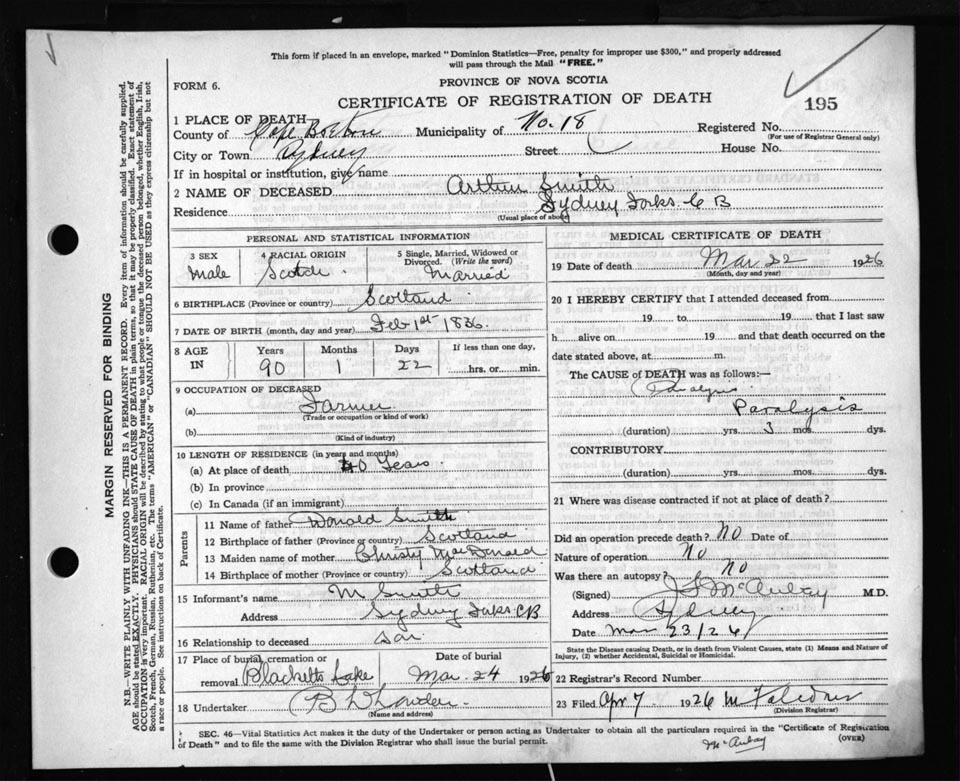 This form if placed in an envelope, marked "Dominion Statistics—Free, penalty for improper use $300," and properly addressed
will pass through the Mail "FREE."
FORM 6.
PROVINCE OF NOVA SCOTIA
CERTIFICATE OF REGISTRATION OF DEATH
195
1 PLACE OF DEATH
County of Cape Breton Municipality of No. 18 Registered No.
(For use of Registrar General only)
City or Town Sydney Street House No.
If in hospital or institution, give name
2 NAME OF DECEASED Arthur Smith
Residence Sydney Forks C B
(Usual place of abode)
PERSONAL AND STATISTICAL INFORMATION
3 SEX Male
4 RACIAL ORIGIN Scotch
5 Single, Married, Widowed or Divorced. (Write the word) Married
6 BIRTHPLACE (Province or country) Scotland
7 DATE OF BIRTH (month, day and year) Feb 1st 1836
8 AGE IN Years 90 Months 1 Days 22 If less than one day, hrs. or min.
9 OCCUPATION OF DECEASED
(a) Farmer
(Trade or occupation or kind of work)
(b)
(Kind of industry)
10 LENGTH OF RESIDENCE (in years and months)
(a) At place of death 40 Years
(b) In province
(c) In Canada (if an immigrant)
Parents
11 Name of father Donald Smith
12 Birthplace of father (Province or country) Scotland
13 Maiden name of mother Christy MacDonald
14 Birthplace of mother (Province or country) Scotland
15 Informant's name M Smith
Address Sydney Forks CB
16 Relationship to deceased Son
17 Place of burial, cremation or removal Blacketts Lake Date of burial Mar. 24 1926
18 Undertaker
(Name and address)
MEDICAL CERTIFICATE OF DEATH
19 Date of death Mar 22 1926
(Month, day and year)
20 I HEREBY CERTIFY that I attended deceased from
19 to 19 that I last saw
h alive on 19 and that death occurred on the
date stated above, at m.
The CAUSE of DEATH was as follows:—
Paralysis
Paralysis
(duration) yrs. 3 mos. dys.
CONTRIBUTORY
(duration) yrs. mos. dys.
21 Where was disease contracted if not at place of death?
Did an operation precede death? No Date of
Nature of operation No
Was there an autopsy? No
(Signed) M.D.
Address Sydney
Date Mar 23/26
State the Disease causing Death, or in death from Violent Causes, state (1) Means and Nature of
Injury, (2) whether Accidental, Suicidal or Homicidal.
22 Registrar's Record Number
23 Filed Apr 7 1926
(Division Registrar)
SEC. 46—Vital Statistics Act makes it the duty of the Undertaker or person acting as Undertaker to obtain all the particulars required in the "Certificate of Registration
of Death" and to file the same with the Division Registrar who shall issue the burial permit.
(OVER)
MARGIN RESERVED FOR BINDING
N.B.—WRITE PLAINLY WITH UNFADING INK—THIS IS A PERMANENT RECORD. Every item of information should be carefully supplied.
AGE should be stated EXACTLY. PHYSICIANS should STATE CAUSE OF DEATH in plain terms, so that it may be properly classified. Exact statement of
OCCUPATION is very important. RACIAL ORIGIN will be described by stating to what people or tongue the deceased person belonged, whether English, Irish,
Scotch, French, German, Russian, Ruthenian, etc. The terms "AMERICAN" or "CANADIAN" SHOULD NOT BE USED as they express citizenship but not
a race or people. See instructions on back of Certificate.